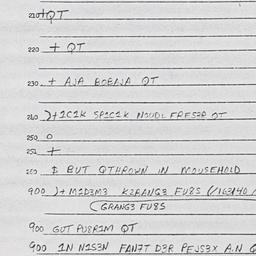 210 + QT
220 + QT
230 + AJA BOBAJA QT
240 )+1C1K SP1C1K NOUDL FRES2R QT
250 O
252 +
260 $ BUT QTHROWN IN MOUSEHOLD
900 )+ M1D3M3 K2RANG3 FU8S (/163140 /
(GRANG3 FU8S
900 GUT PU8R1M QT
900 1N N1S3N FAN7T D3R PEJS3X A.N Q